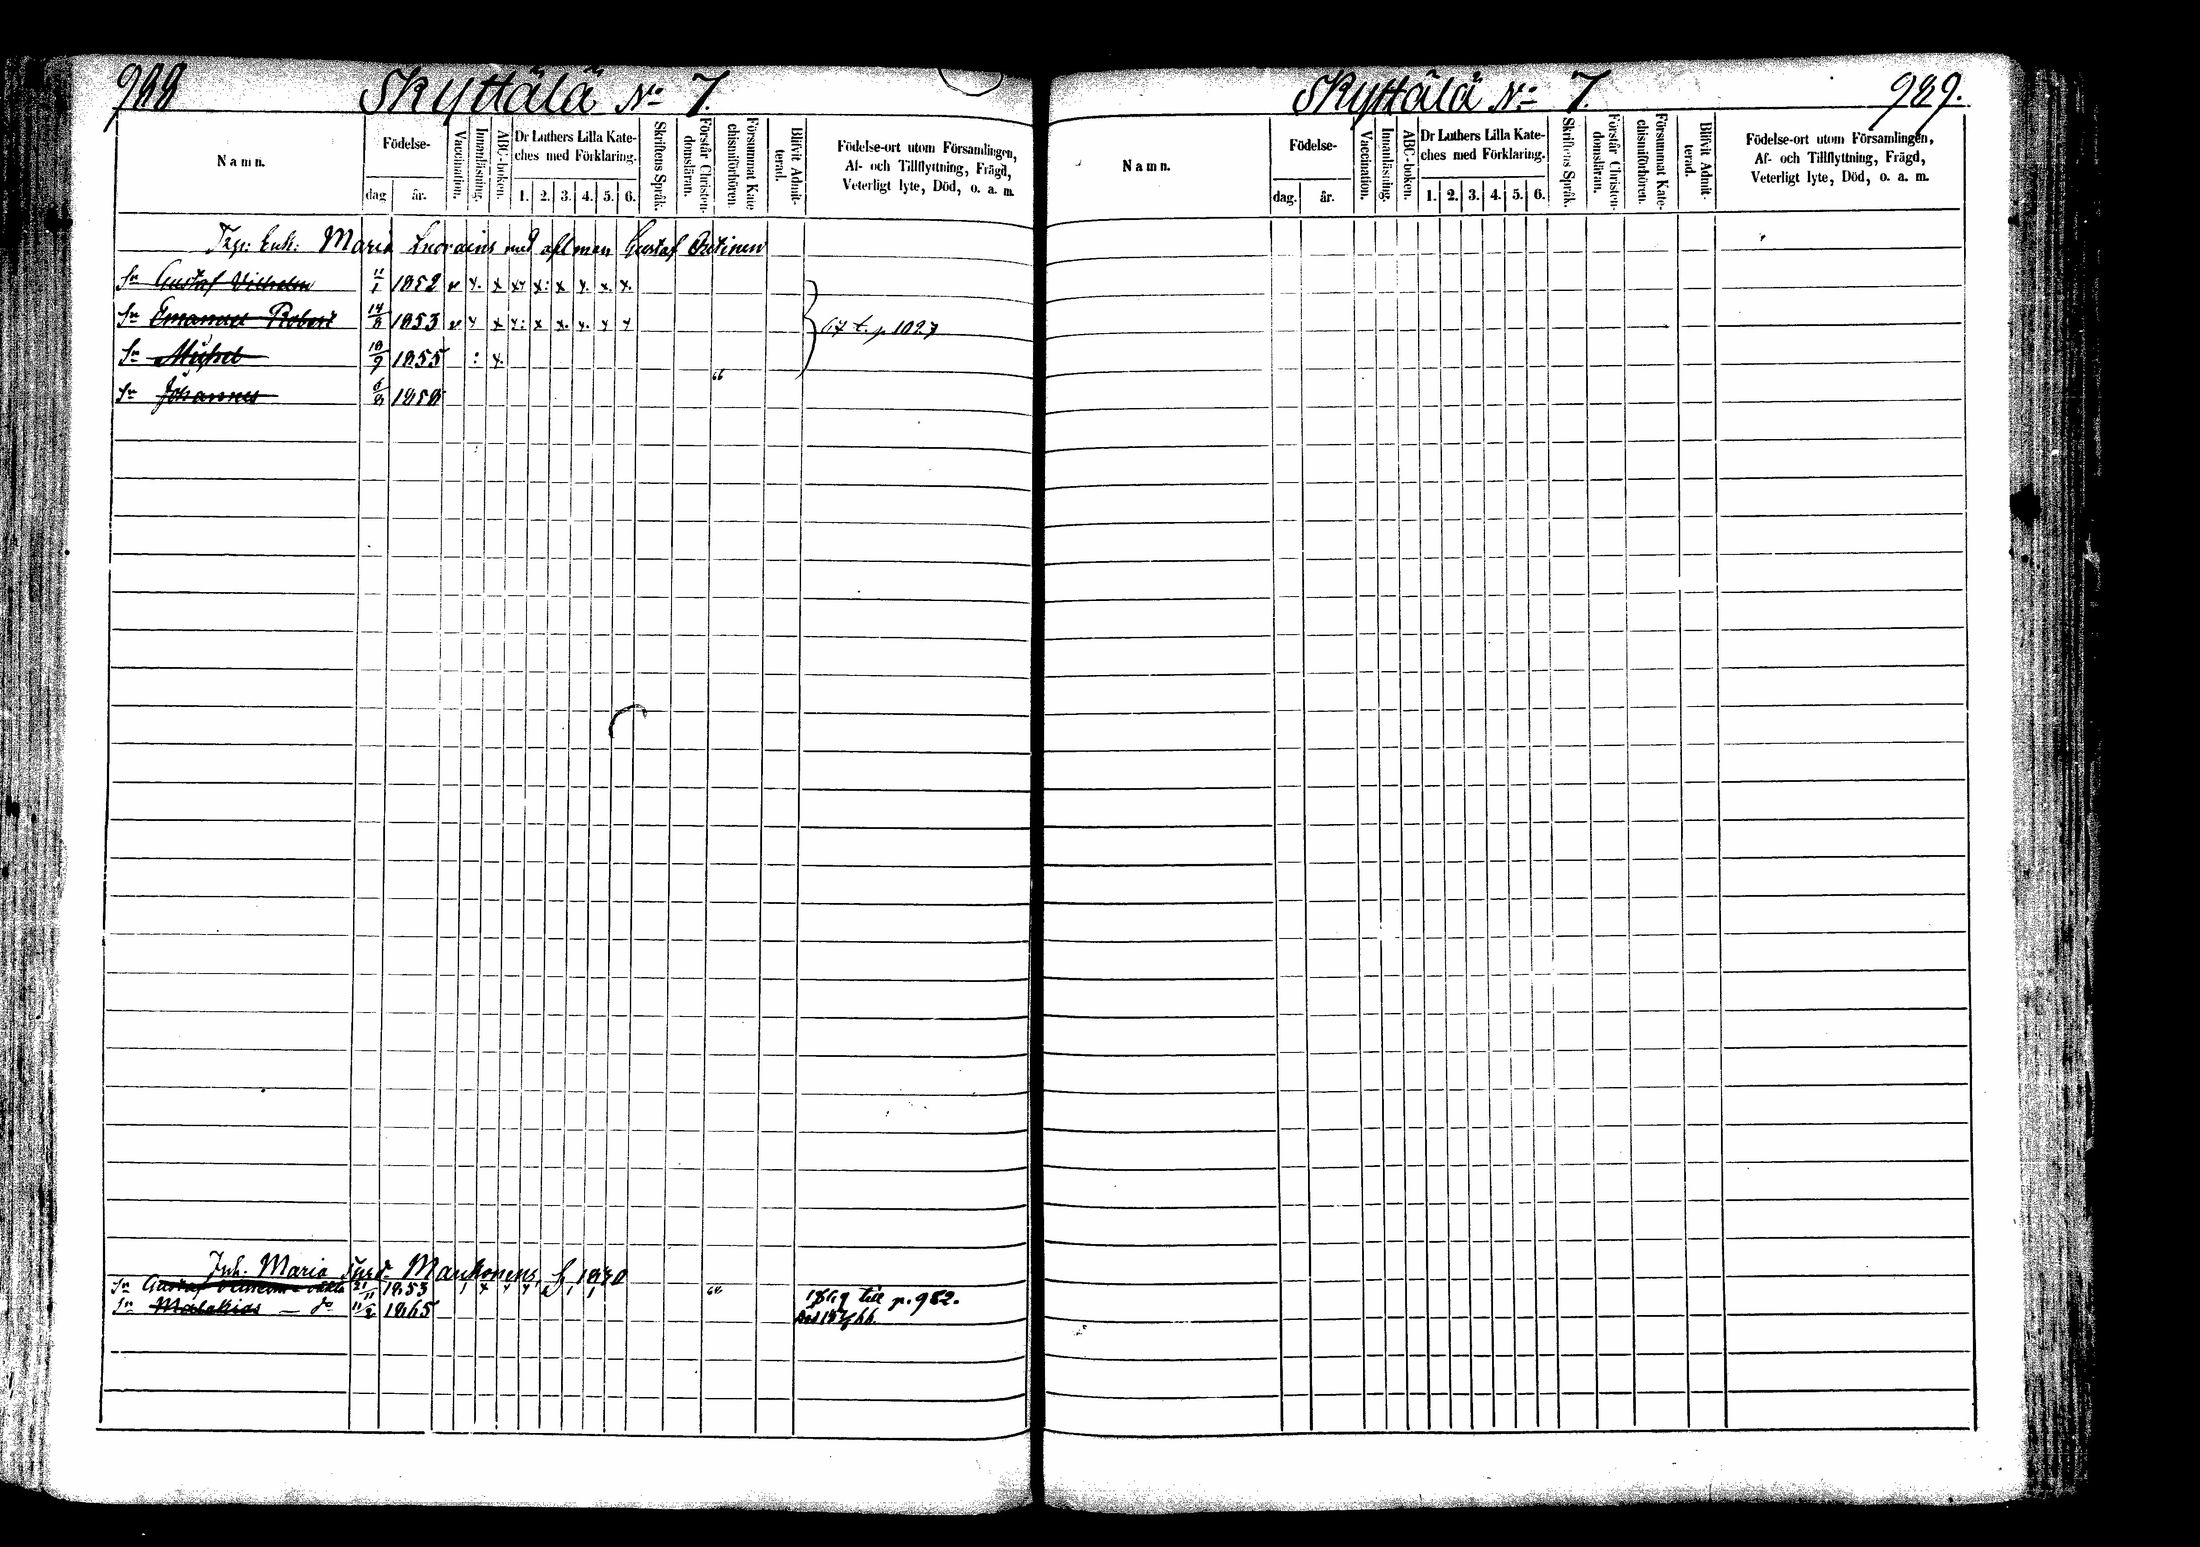 988 Skyttälä No 7.
Namn.
Födelse-
dag
år.
Vaccination.
Innanläsning.
ABC-boken.
Dr Luthers Lilla Kate-
ches med Förklaring.
1. 2. 3. 4. 5. 6.
Skriftens Språk.
Förstår Christen-
domsläran.
Försummat Kate
chismiförhören.
Blifvit Admit-
terad.
Födelse-ort utom Församlingen,
Af- och Tillflyttning, Frägd,
Veterligt lyte, Död, o. a. m.
Enk: Maria med afl man Gustaf
Sn Gustaf Vilhelm 11/1 1852 v x. x x x: x x. x. x.
Sn Emanuel Robert 14/8 1853 v x x x: x x. x. x x
67 t. p. 1027
Sn Mickel 10/9 1855 : x.
66
Sn Johannes 1858
Inh. Maria Manhonens 1870
Sn Gustaf Vilhelm 21/11 1853
68
1869 till p. 982.
Sn Malakias — 11/2 1865
Död 66.
Skyttälä No 7. 989.
Namn.
Födelse-
dag.
år.
Vaccination.
Innanläsning.
ABC-boken.
Dr Luthers Lilla Kate-
ches med Förklaring.
1. 2. 3. 4. 5. 6.
Skriftens Språk.
Förstår Christen-
domsläran.
Försummat Kate-
chismiförhören.
Blifvit Admit-
terad.
Födelse-ort utom Församlingen,
Af- och Tillflyttning, Frägd,
Veterligt lyte, Död, o. a. m.